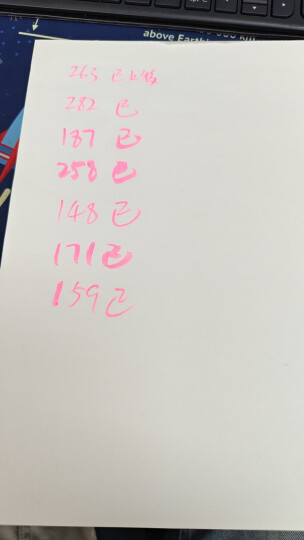 above Earth
263 已上线
282 已
187 已
258 已
148 已
171 已
159 已